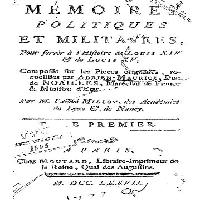 MÉMOIRES
POLITIQUES
ET MILITAIRES,
Pour servir à l'Histoire de LOUIS XIV
& de LOUIS XV,
Composés sur les Pieces originales, re-
cueillies par ADRIEN-MAURICE, Duc
de NOAILLES, Maréchal de France
& Ministre d'Etat.
Par M. l'Abbé MILLOT, des Académies
de Lyon & de Nancy.
TOME PREMIER.
A PARIS,
Chez MOUTARD, Libraire-Imprimeur de
la Reine, Quai des Augustins.
M. DCC. LXXVII.